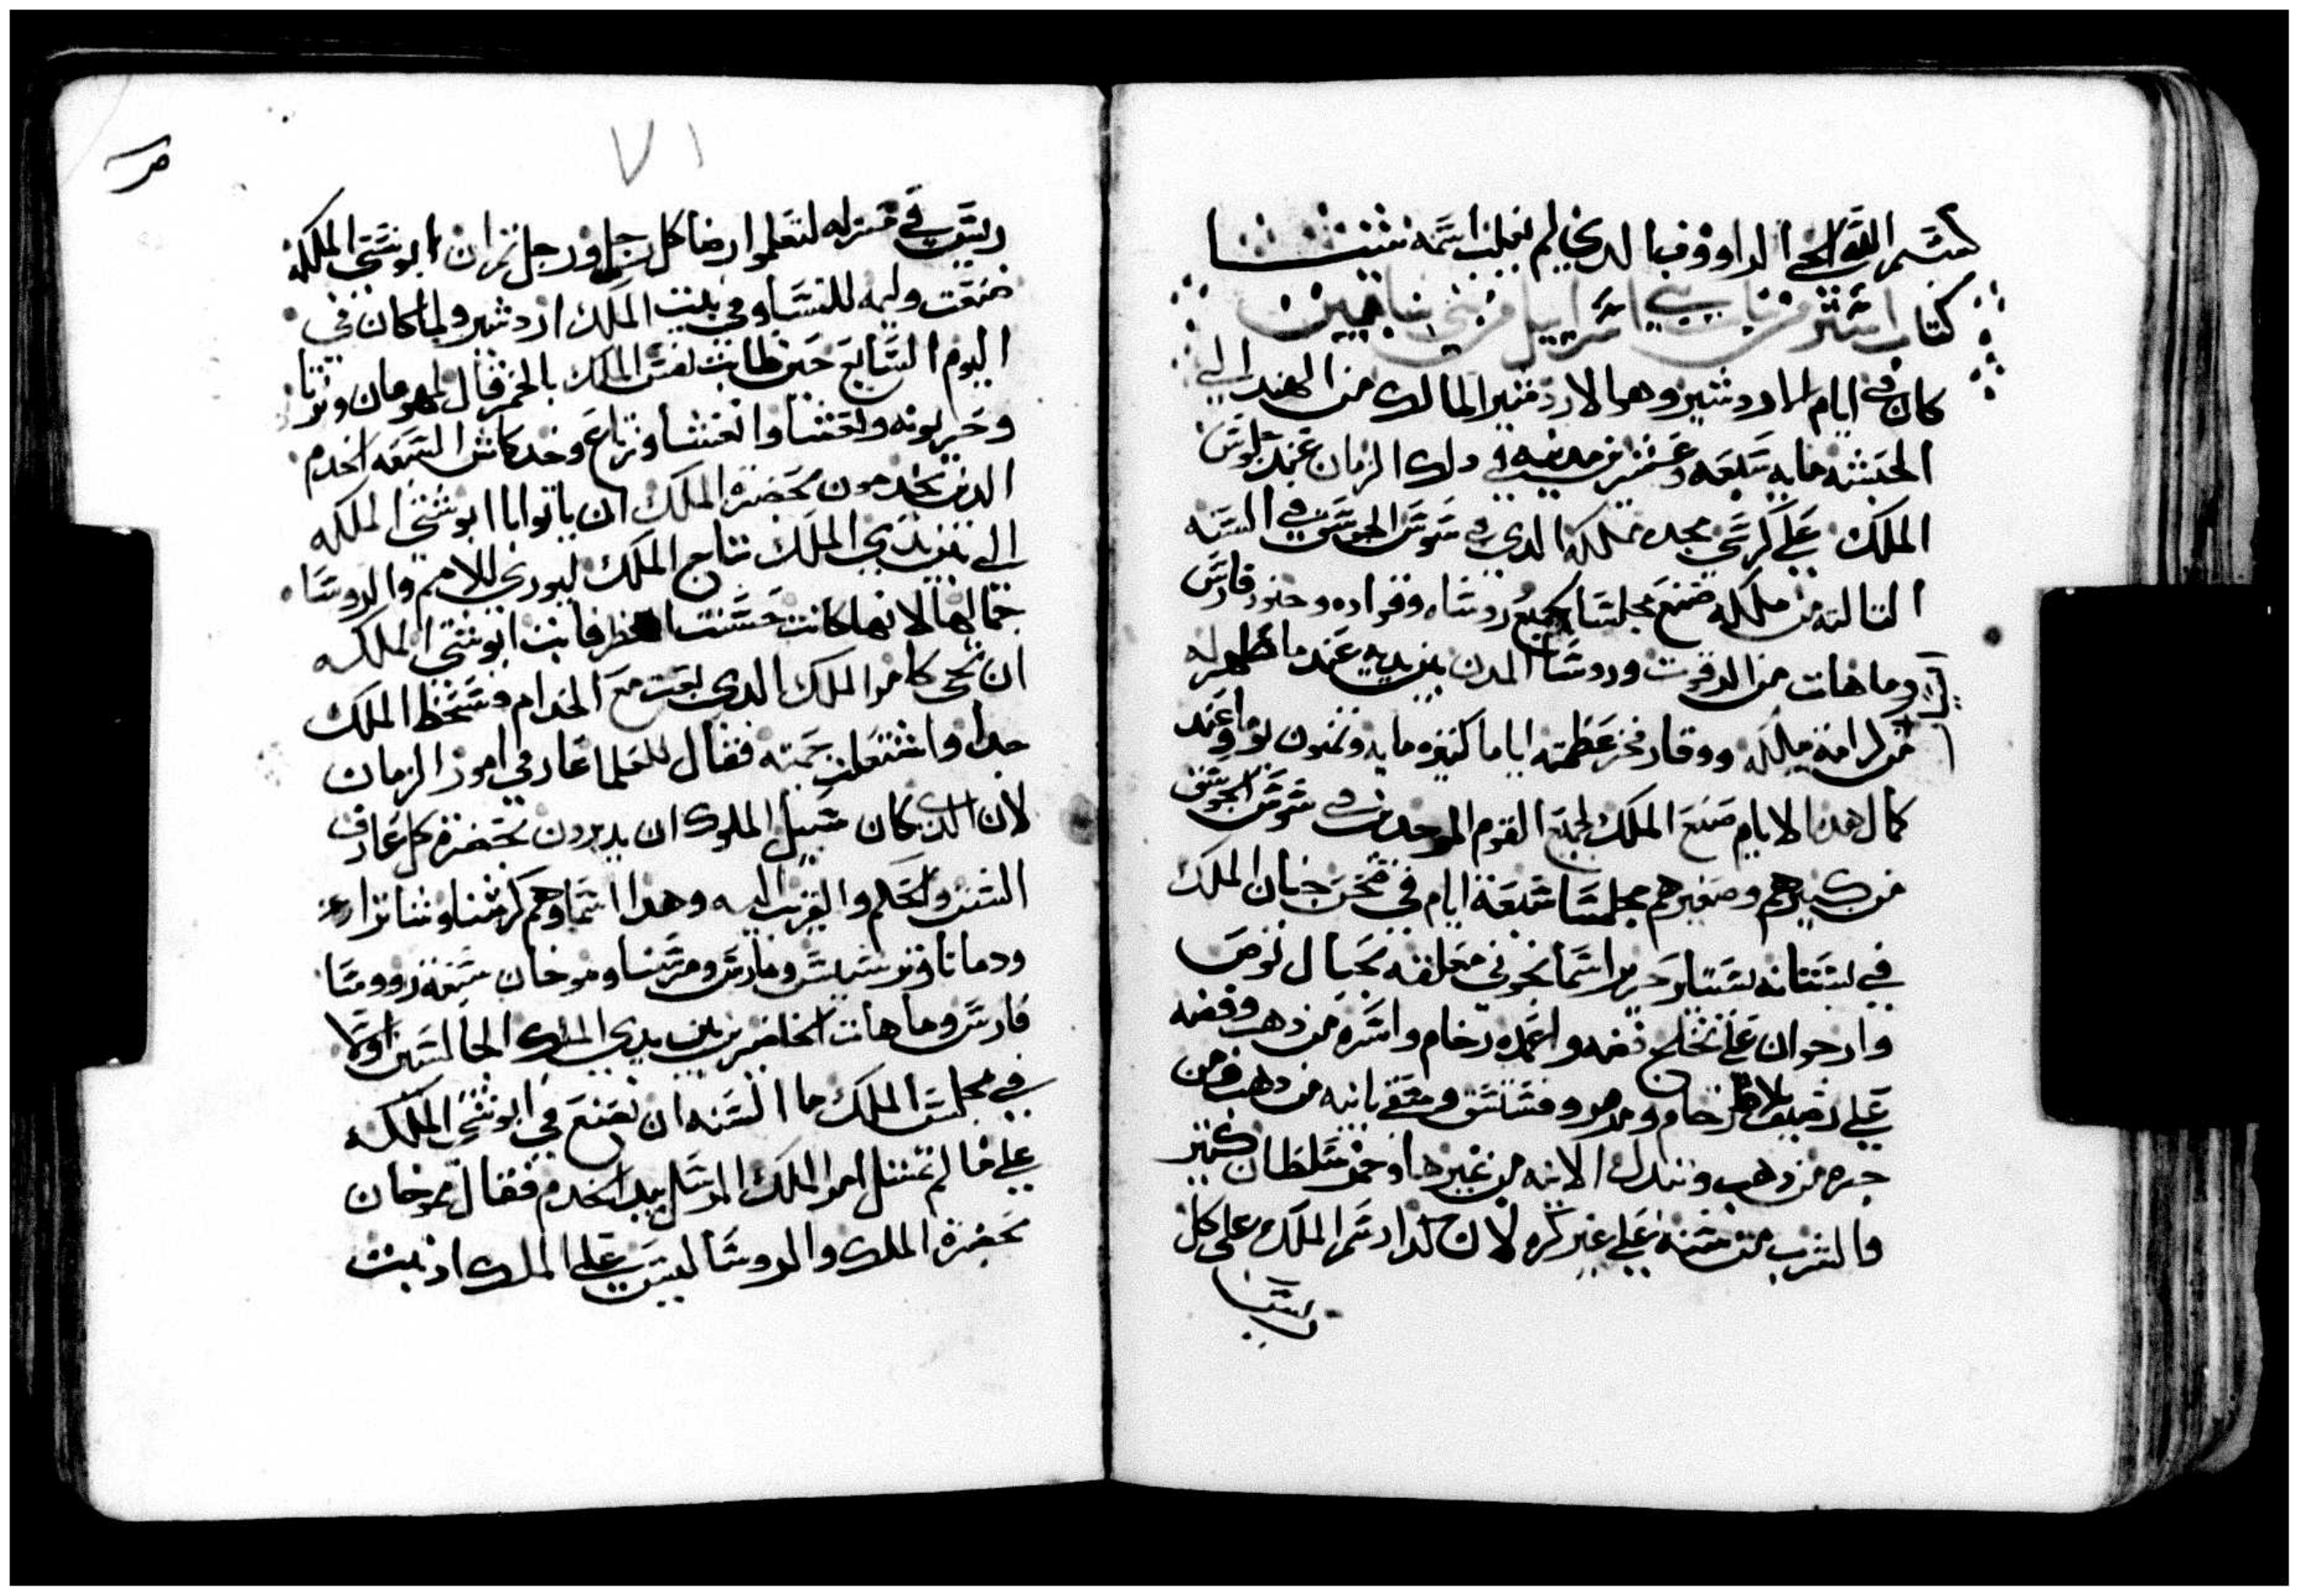 بسم الله الحي الداووف الدي لم
كتاب استير من بني اسراييل من بنيامين
كان في ايام اردشير وهو الاردشير المالك من الهند الى
الحبشه مايه سبعه وعشرين مدينه في دلك الزمان عند جلوس
الملك على كرسي مجد مملكه الدي في سوس الجوسق في السنه
التالته من ملكه صنع مجلسا لجميع روساه وقواده وجنود فارس
وماهات من الدقوت وروسا المدن بين يديه عند ما ظهر له
من كرامة ملكه ووقار فخر عظمته اياما كتيره مايه وتمنون يوما وعند
كمال هدا الايام صنع الملك لجميع القوم الموجدين في سوس الجوسق
من كبيرهم وصغيرهم مجلسا سبعة ايام في صحن جنان الملك
في بستانه بستاير حرير اسمانجوني معلقه بحبال بوص
وارجوان على فضه واعمدة رخام واسرة من دهب وفضه
على رخام ومرمر وسقي بانيه من دهب ومن
جره من دهب وتبدل الانيه من غيرها وخمر سلطان كتير
والشرب سنه على غير كره لان كدا رسم الملك على كل
ريس
٧١
ريس في منزله لتعملوا رضا كل رجل ورجل تم ان ابوشتي الملكه
صنعت وليمه للنسا وفي بيت الملك اردشير ولما كان في
اليوم السابع حين طابت نفس الملك بالخمر قال لمهومان وبزتا
وحربونه وبغتا وابغتا وزتاع وخدكاش السبعه الخدم
الدين يخدمون بحضرة الملك ان ياتوا بابوشتي الملكه
الى بين يدي الملك بتاج الملك ليوري للامم والروسا
جمالها لانها كانت حسنت المنظر فابت ابوشتي الملكه
ان تجي كامر الملك الدي بعت مع الخدام فسخط الملك
جدا واشتعلت حمته فقال للحكما عارفي امور الزمان
لان الدي كان سبيل الملوك ان يديرون بحضرة كل عارف
السنن والحكم والقريب اليه وهدا اسماوهم كرشنا وشاتر
ودماتا وترشيش ومارس ومرسنا وموخان سبعة روسا
فارس وماهات الحاضرين بين يدي الملك الجالسين اولا
في مجلس الملك ما السنه ان نصنع في ابوشتي الملكه
على ما لم تمتتل امر الملك المرسل بيد الخدم فقال موخان
بحضرة الملك والروسا ليس على الملك ادنبت